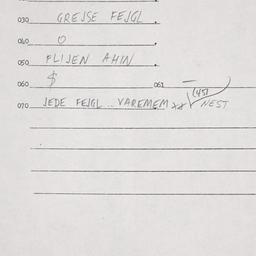 030 GREJSE FEJGL.
040 O.
050 PLIJEN AHIN.
060 $ 061 (45)
070 JEDE FEJGL .. VAREMEM xx NEST